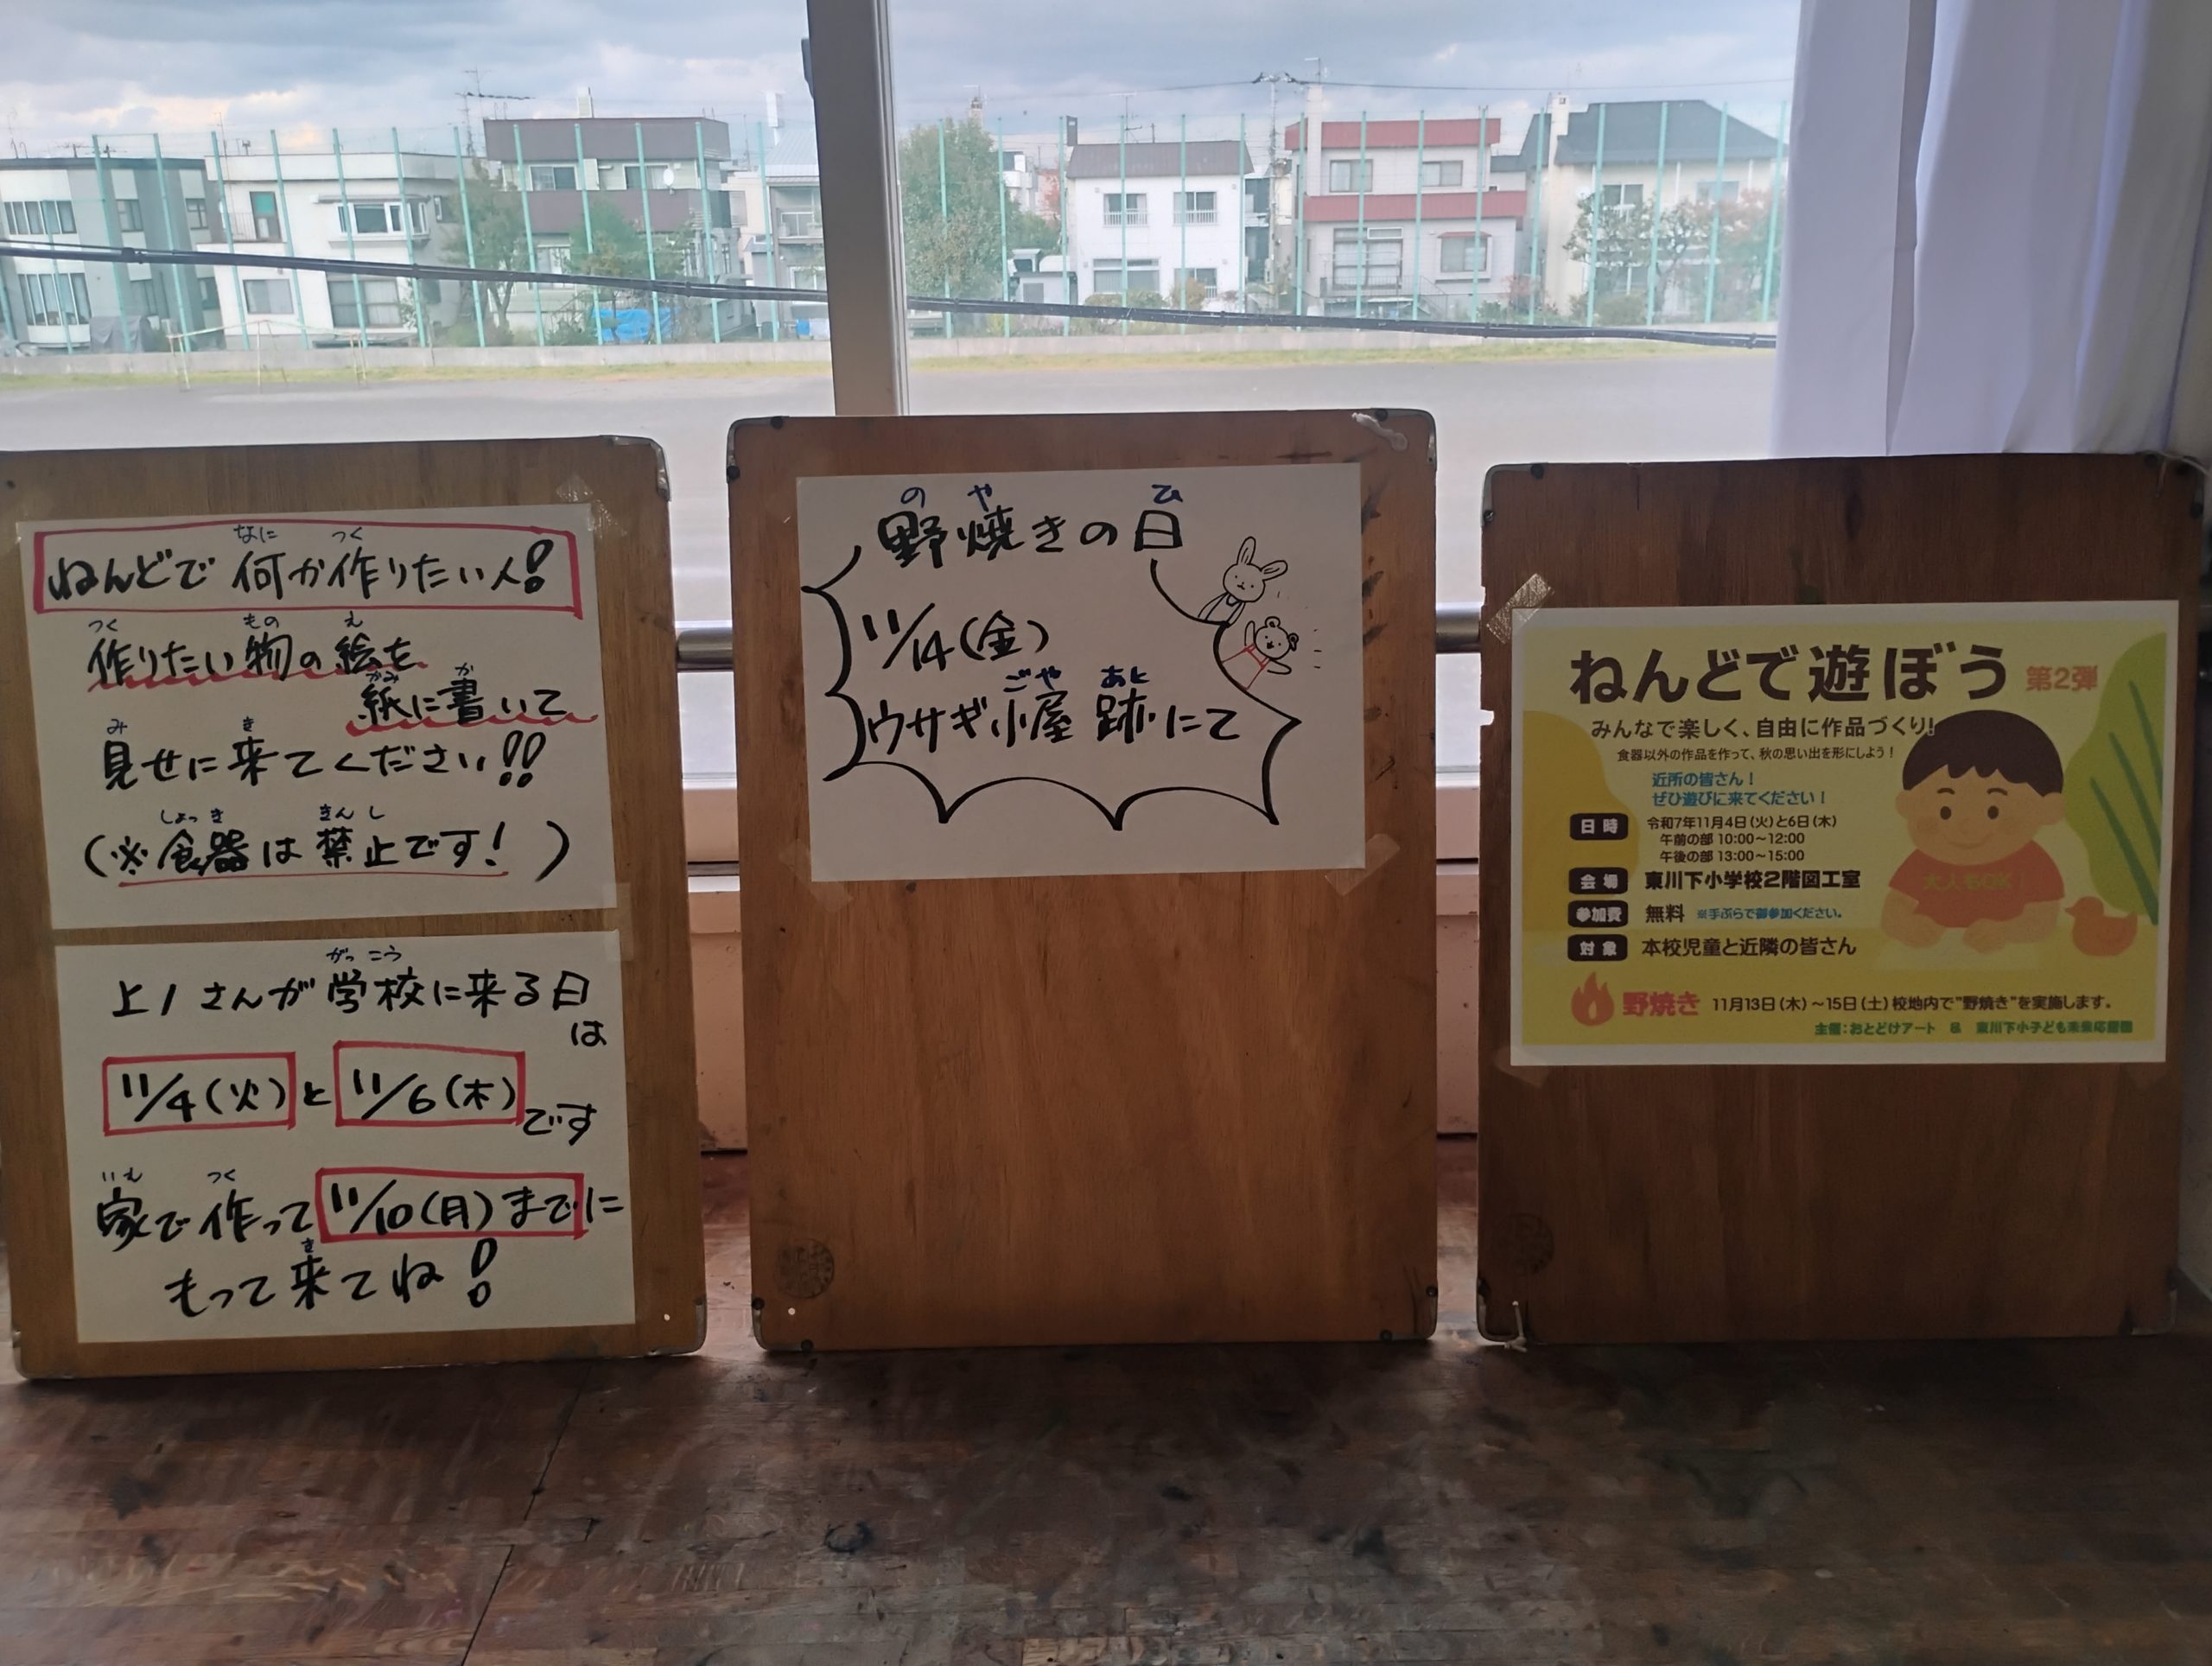 ねんどで何か作りたい人!
なに つく
作りたい物の絵を
つく もの え
紙に書いて
かみ か
見せに来てください!!
み き
(※食器は禁止です!)
しょっき きんし
上ノさんが学校に来る日
がっこう
は
11/4(火)と11/6(木)です
家で作って11/10(月)までに
いえ つく
もって来てね!
き
野焼きの日
の や ひ
11/14(金)
ウサギ小屋跡にて
ごや あと
ねんどで遊ぼう 第2弾
みんなで楽しく、自由に作品づくり!
食器以外の作品を作って、秋の思い出を形にしよう!
近所の皆さん!
ぜひ遊びに来てください!
日時 令和7年11月4日(火)と6日(木)
午前の部 10:00~12:00
午後の部 13:00~15:00
会場 東川下小学校2階図工室
参加費 無料 ※手ぶらで御参加ください。
対象 本校児童と近隣の皆さん
大人もOK
野焼き 11月13日(木)~15日(土)校地内で"野焼き"を実施します。
主催:おとどけアート & 東川下小子ども未来応援団